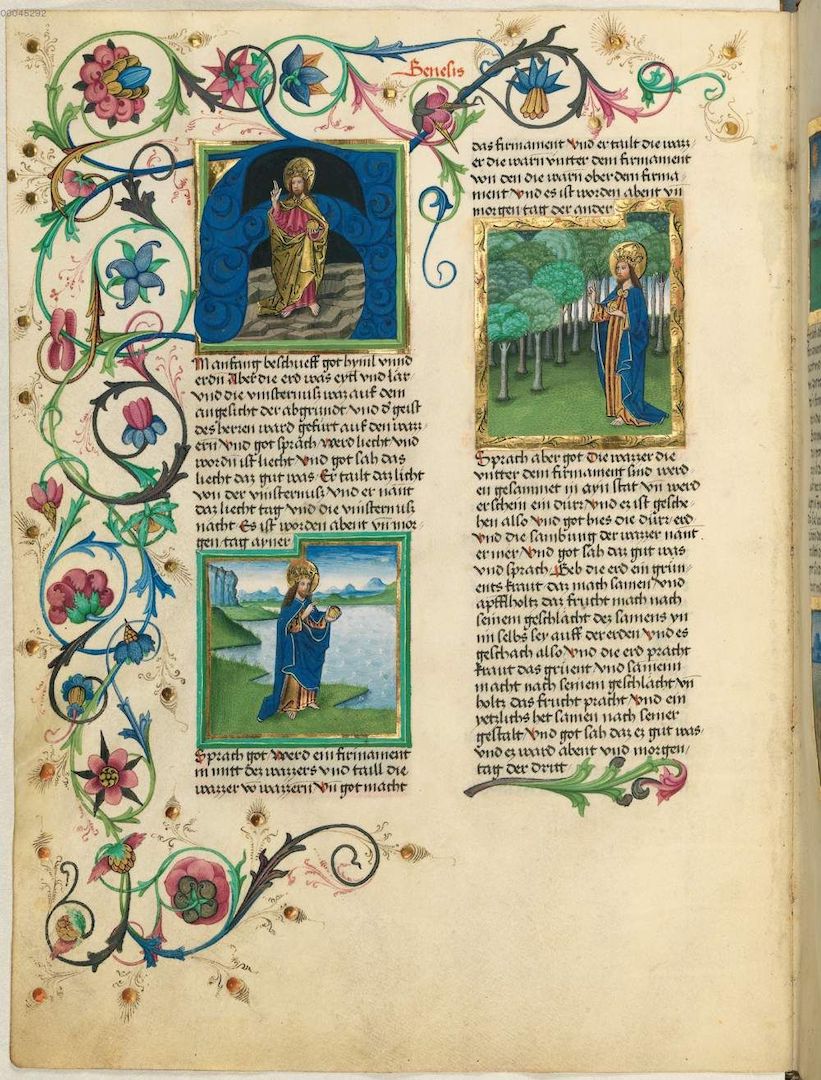 00045292
Genesis
M anfang beschueff got hymil vnnd
erdn Aber die erd was eytl vnd lar
vnd die vinsternuss war auf dem
angesicht der abgrundt vnd d' geist
des herren ward gefurt auf den warr-
ern Vnd got sprach werd liecht vnd
wordn ist liecht Vnd got sah das
liecht daz gut was Er tailt daz licht
von der vinsternuss vnd er nant
daz liecht tag vnd die vinsternuss
nacht Es ist worden abent vn mor-
gen tag ayner
Sprach got Werd ein firmament
in mitt dez wazzers vnd taill die
wazzer vo wazzern Vn got macht
das firmament Vnd er tailt die wazz-
er die warn vntter dem firmament
von den die warn ober dem firma-
ment Vnd es ist worden abent vn
morgen tag der ander
Sprach aber got Die wazzer die
vntter dem firmament sind werd
en gesammet in ayn stat vn werd
erschein ein dürr Vnd ez ist gesche-
hen also Vnd got hies die dürr erd
Vnd die sambung der wazzer nant
er mer Vnd got sah daz gut was
vnd sprach Geb die erd ein grün-
ents kraut daz mach samen Vnd
apffllholtz daz frucht mach nach
seinem geschlächt dez samens yn
im selbs sey auff der erden Vnd es
geschach also Vnd die erd pracht
kraut das grüent vnd samenn
macht nach seinem geschlächt vn
holtz das frucht pracht Vnd ein
yetzlichs het samen nach seiner
gestalt Vnd got sah daz ez gut was
vnd ez ward abent vnd morgen
tag der dritt